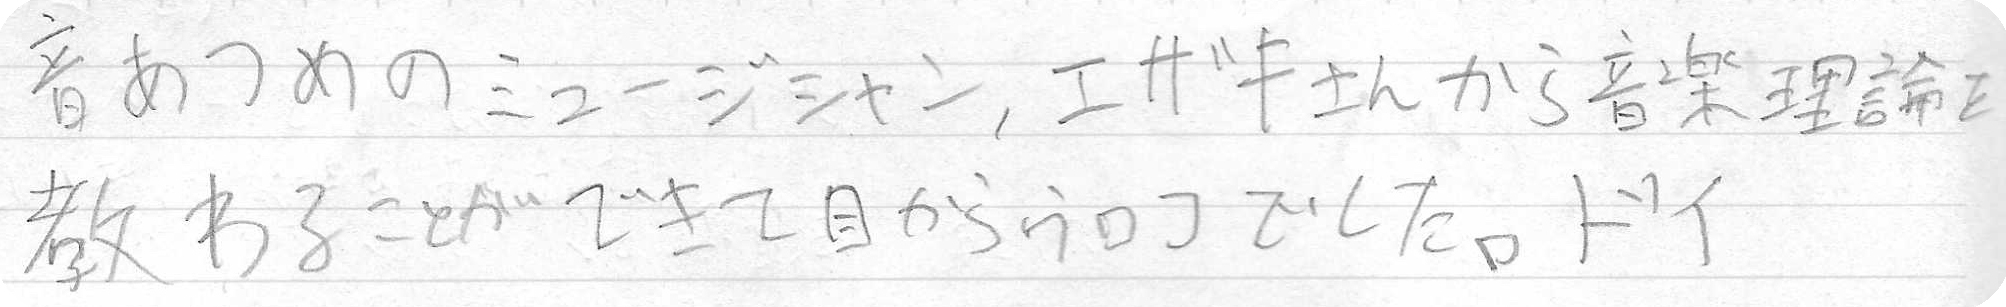 音あつめのミュージシャン,エザキさんから音楽理論を
教わることができて目からウロコでした。ドイ